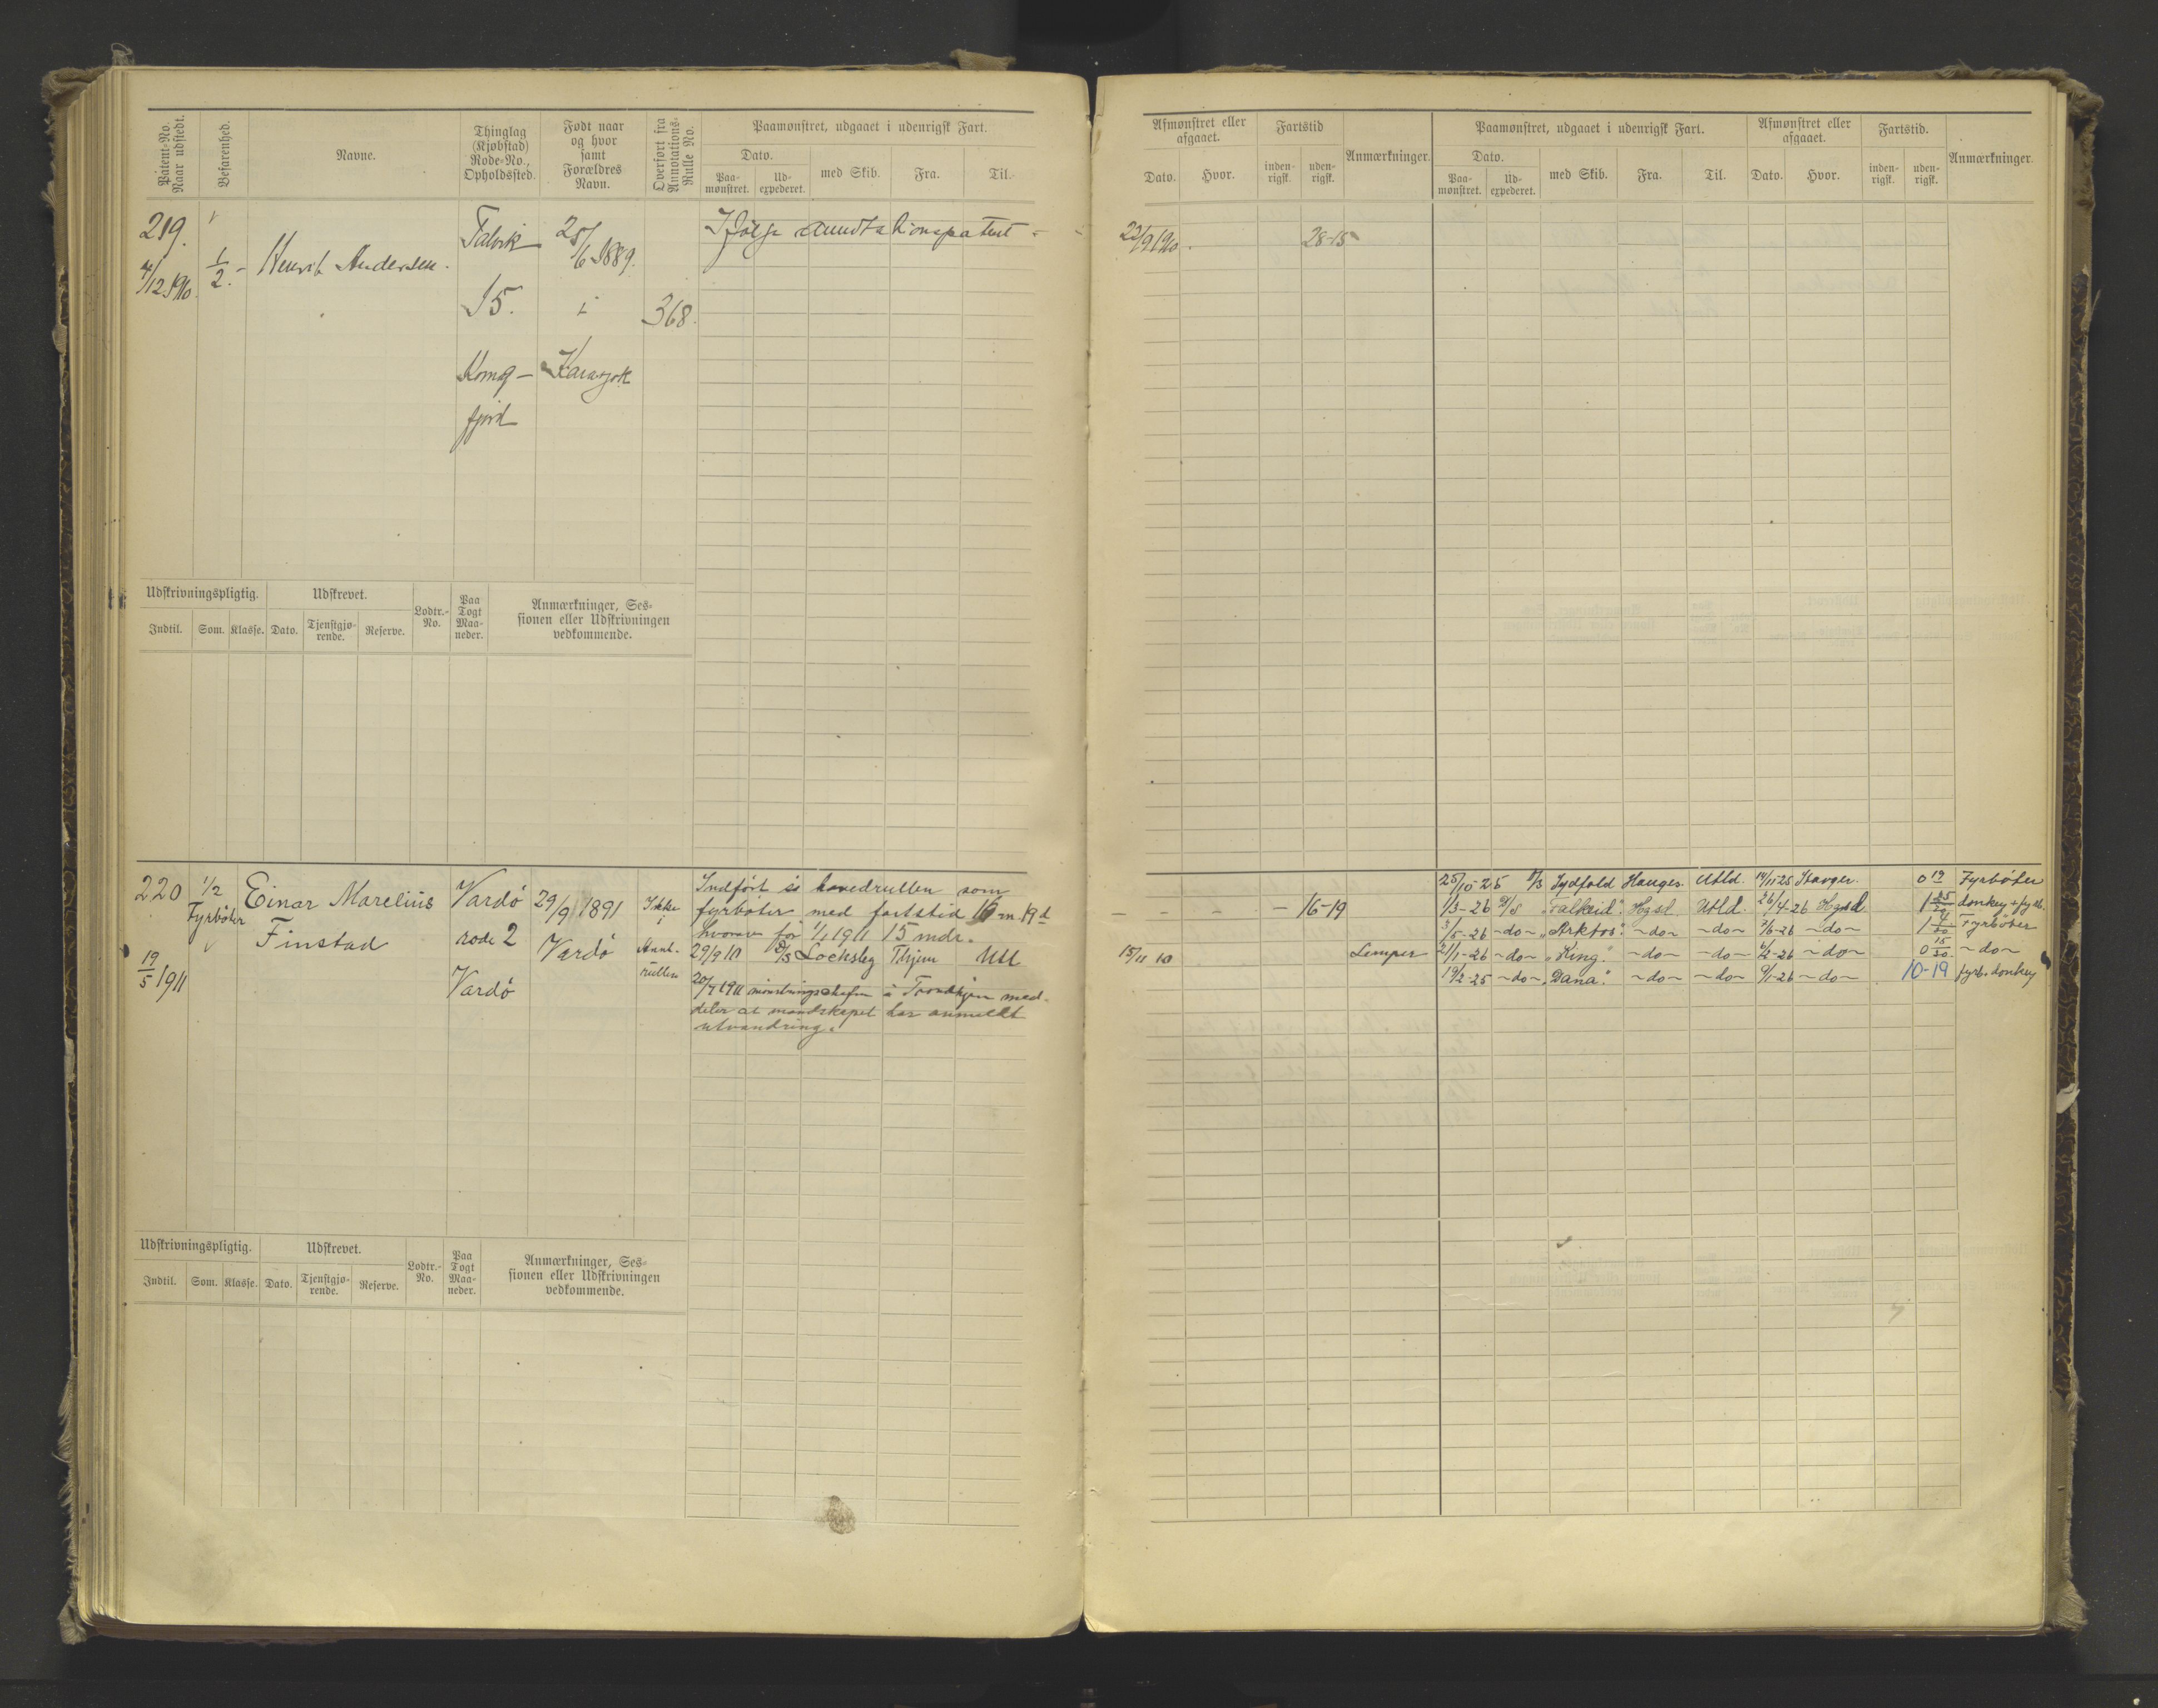 Patent-No. Naar udstedt.
Befarenhed.
Navne.
Thinglag (Kjøbstad) Rode-No., Opholdssted.
Født naar og hvor samt Forældres Navn.
Overført fra Annotations-Rulle No.
Paamønstret, udgaaet i udenrigsk Fart.
Dato.
Paa-mønstret.
Ud-expederet.
med Skib.
Fra.
Til.
219.
4/12 1910.
1/2.
Henrik Andersen.
Talvik
15.
Komag-
fjord
25/6 1889.
i
Karasjok
368.
Ifølge annotationspatent
Udskrivningspligtig.
Udskrevet.
Lodtr.-No.
Paa Togt Maa-neder.
Anmærkninger, Ses-
sionen eller Udskrivningen
vedkommende.
Indtil. Som. Klasse. Dato. Tjenstgjø-rende. Reserve.
220
19/5 1911
1/2
Fyrböter
Einar Marelius
Finstad
Vardö
rode 2
Vardö
29/9 1891
Vardö
Ikke
i
Annt.
rullen
Indfört i hovedrullen som
fyrböter med fartstid 16 m. 19 d
hvorav før 1/1 1911 15 mdr.
29/9 10 D/S Locksley Thjem Utl
20/7 1911 mönstringschefen i Trondhjem med-
deler at mandskapet har anmeldt
utvandring.
Udskrivningspligtig.
Udskrevet.
Lodtr.-No.
Paa Togt Maa-neder.
Anmærkninger, Ses-
sionen eller Udskrivningen
vedkommende.
Indtil. Som. Klasse. Dato. Tjenstgjø-rende. Reserve.
Afmønstret eller afgaaet.
Fartstid
Anmærkninger.
Paamønstret, udgaaet i udenrigsk Fart.
Afmønstret eller afgaaet.
Fartstid.
Anmærkninger.
Dato. Hvor. inden-rigsk. uden-rigsk.
Dato.
Paa-mønstret. Ud-expederet. med Skib. Fra. Til. Dato. Hvor. inden-rigsk. uden-rigsk.
22/9 1910. 28-15
- - - - 16-19
15/11 10 Lemper
25/10-25 D/S Sydfold Hauges. Utld. 14/11 25 Stavger. 0 19 Fyrböter
1/3-26 D/S "Falkeid". Hgsd. Utld. 26/4-26 Hgsd 1 25/30 donkey + fyrb.
3/5-26 -do- "Arktos". -do- -do- 7/6-26 -do- 1 4/30 Fyrböter
21/1-26 -do- "King". -do- -do- 6/2-26 -do- 0 15/30 -do-
19/2-25 -do- "Dana". -do- -do- 9/1-26 -do- 10-19 fyrb. donkey